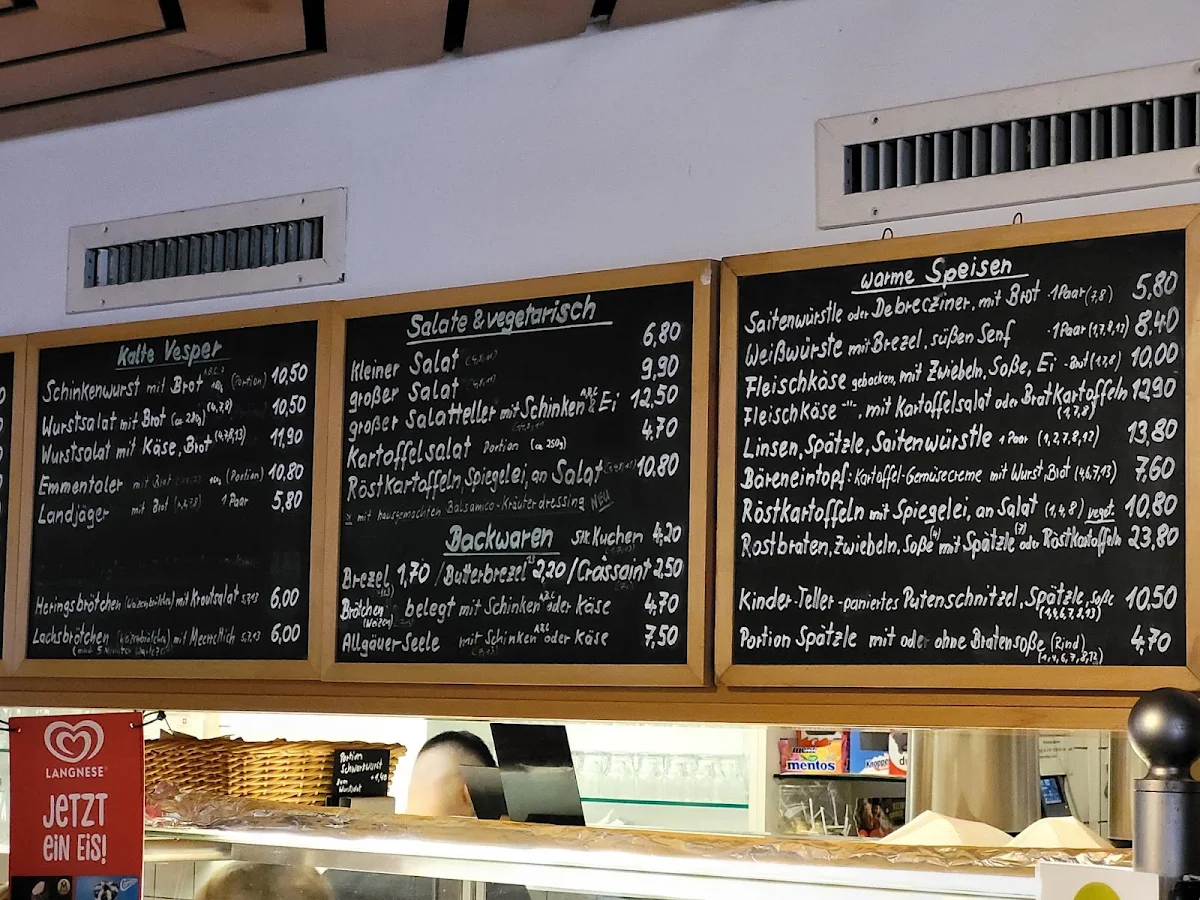 Kalte Vesper
Schinkenwurst mit Brot A,B,C,3 (Portion) 10,50
Wurstsalat mit Brot (ca 280g) (4,7,8) 10,50
Wurstsalat mit Käse, Brot (4,7,8,13) 11,90
Emmentaler mit Brot (Portion) 10,80
Landjäger mit Brot 1 Paar 5,80
Heringsbrötchen (Weizenbrötchen) mit Krautsalat 6,00
Lachsbrötchen (Weizenbrötchen) mit Meerrettich 6,00
Salate & vegetarisch
Kleiner Salat 6,80
großer Salat 9,90
großer Salatteller mit Schinken A,B,C & Ei 12,50
Kartoffelsalat Portion (ca 250g) 4,70
Röstkartoffeln, Spiegelei, an Salat 10,80
* mit hausgemachten Balsamico-Kräuterdressing NEU
Backwaren Stk Kuchen 4,20
Brezel 1,70 / Butterbrezel 2,20 / Crossaint 2,50
Brötchen (Weizen) belegt mit Schinken A,B,C oder Käse 4,70
Allgäuer Seele mit Schinken A,B,C oder Käse 7,50
warme Speisen
Saitenwürstle oder Debrecziner, mit Brot · 1 Paar (7,8) 5,80
Weißwürste mit Brezel, süßen Senf · 1 Paar (1,7,8,12) 8,40
Fleischkäse gebacken, mit Zwiebeln, Soße, Ei - Brot (1,7,8) 10,00
Fleischkäse -"-, mit Kartoffelsalat oder Bratkartoffeln (1,7,8) 12,90
Linsen, Spätzle, Saitenwürstle 1 Paar (1,2,7,8,12) 13,80
Bäreneintopf: Kartoffel-Gemüsecreme mit Wurst, Brot (4,6,7,13) 7,60
Röstkartoffeln mit Spiegelei, an Salat (1,4,8) veget. 10,80
Rostbraten, Zwiebeln, Soße (4) mit Spätzle (7) oder Röstkartoffeln 23,80
Kinder-Teller - paniertes Putenschnitzel, Spätzle, Soße (1,4,6,7,8,13) 10,50
Portion Spätzle mit oder ohne Bratensoße (Rind) (1,4,6,7,8,12) 4,70
LANGNESE
JETZT
EIN EIS!
Portion
Schwartwurst
+1,40
zum
Wurstsalat
mentos
Knoppers